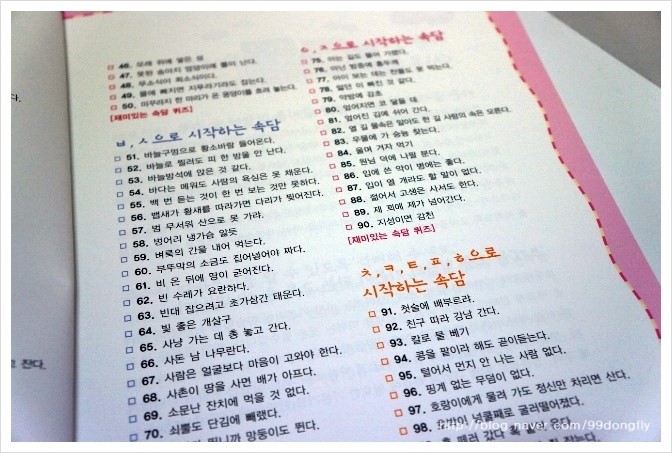 46. 모래 위에 쌓은 성
47. 못된 송아지 엉덩이에 뿔이 난다.
48. 무소식이 희소식이다.
49. 물에 빠지면 지푸라기라도 잡는다.
50. 미꾸라지 한 마리가 온 웅덩이를 흐려 놓는다.
[재미있는 속담 퀴즈]
ㅂ, ㅅ으로 시작하는 속담
51. 바늘구멍으로 황소바람 들어온다.
52. 바늘로 찔러도 피 한 방울 안 난다.
53. 바늘방석에 앉은 것 같다.
54. 바다는 메워도 사람의 욕심은 못 채운다.
55. 백 번 듣는 것이 한 번 보는 것만 못하다.
56. 뱁새가 황새를 따라가면 다리가 찢어진다.
57. 범 무서워 산으로 못 가랴.
58. 벙어리 냉가슴 앓듯
59. 벼룩의 간을 내어 먹는다.
60. 부뚜막의 소금도 집어넣어야 짜다.
61. 비 온 뒤에 땅이 굳어진다.
62. 빈 수레가 요란하다.
63. 빈대 잡으려고 초가삼간 태운다.
64. 빛 좋은 개살구
65. 사냥 가는 데 총 놓고 간다.
66. 사돈 남 나무란다.
67. 사람은 얼굴보다 마음이 고와야 한다.
68. 사촌이 땅을 사면 배가 아프다.
69. 소문난 잔치에 먹을 것 없다.
70. 쇠뿔도 단김에 빼랬다.
뛰니까 망둥이도 뛴다.
ㅇ, ㅈ으로 시작하는 속담
75. 아는 길도 물어 가랬다.
76. 아닌 밤중에 홍두깨
77. 아이 보는 데는 찬물도 못 먹는다.
78. 앓던 이 빠진 것 같다.
79. 약방에 감초
80. 엎어지면 코 닿을 데
81. 엎어진 김에 쉬어 간다.
82. 열 길 물속은 알아도 한 길 사람의 속은 모른다.
83. 우물에 가 숭늉 찾는다.
84. 울며 겨자 먹기
85. 원님 덕에 나팔 분다.
86. 입에 쓴 약이 병에는 좋다.
87. 입이 열 개라도 할 말이 없다.
88. 젊어서 고생은 사서도 한다.
89. 제 꾀에 제가 넘어간다.
90. 지성이면 감천
[재미있는 속담 퀴즈]
ㅊ, ㅋ, ㅌ, ㅍ, ㅎ으로
시작하는 속담
91. 첫술에 배부르랴.
92. 친구 따라 강남 간다.
93. 칼로 물 베기
94. 콩을 팥이라 해도 곧이듣는다.
95. 털어서 먼지 안 나는 사람 없다.
96. 핑계 없는 무덤이 없다.
97. 호랑이에게 물려 가도 정신만 차리면 산다.
98. 호박이 넝쿨째로 굴러떨어졌다.
혹 떼러 갔다
잔다.
http://blog.naver.com/99dongfly